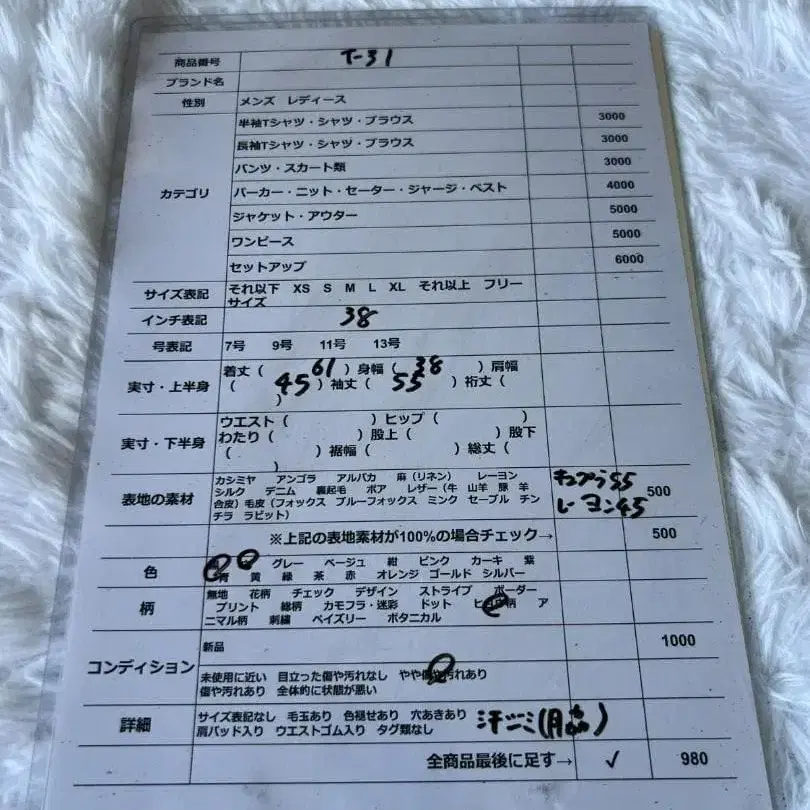 商品番号 T-31
ブランド名
性別 メンズ レディース
カテゴリ
半袖Tシャツ・シャツ・ブラウス 3000
長袖Tシャツ・シャツ・ブラウス 3000
パンツ・スカート類 3000
パーカー・ニット・セーター・ジャージ・ベスト 4000
ジャケット・アウター 5000
ワンピース 5000
セットアップ 6000
サイズ表記 それ以下 XS S M L XL それ以上 フリー
サイズ
インチ表記 38
号表記 7号 9号 11号 13号
実寸・上半身 着丈( 61 )身幅( 38 )肩幅
( 45 )袖丈( 55 )裄丈(
)
実寸・下半身 ウエスト( )ヒップ( )
わたり( )股上( )股下
( )裾幅( )総丈(
)
表地の素材 カシミヤ アンゴラ アルパカ 麻(リネン) レーヨン
シルク デニム 裏起毛 ボア レザー(牛 山羊 豚 羊
合皮)毛皮(フォックス ブルーフォックス ミンク セーブル チン
チラ ラビット)
キュプラ55
レーヨン45 500
※上記の表地素材が100%の場合チェック→ 500
色 グレー ベージュ 紺 ピンク カーキ 紫
青 黄 緑 茶 赤 オレンジ ゴールド シルバー
柄 無地 花柄 チェック デザイン ストライプ ボーダー
プリント 総柄 カモフラ・迷彩 ドット 柄 ア
ニマル柄 刺繍 ペイズリー ボタニカル
コンディション 新品 1000
未使用に近い 目立った傷や汚れなし やや傷や汚れあり
傷や汚れあり 全体的に状態が悪い
詳細 サイズ表記なし 毛玉あり 色褪せあり 穴あきあり
肩パッド入り ウエストゴム入り タグ類なし
汗ジミ
全商品最後に足す→ ✓ 980